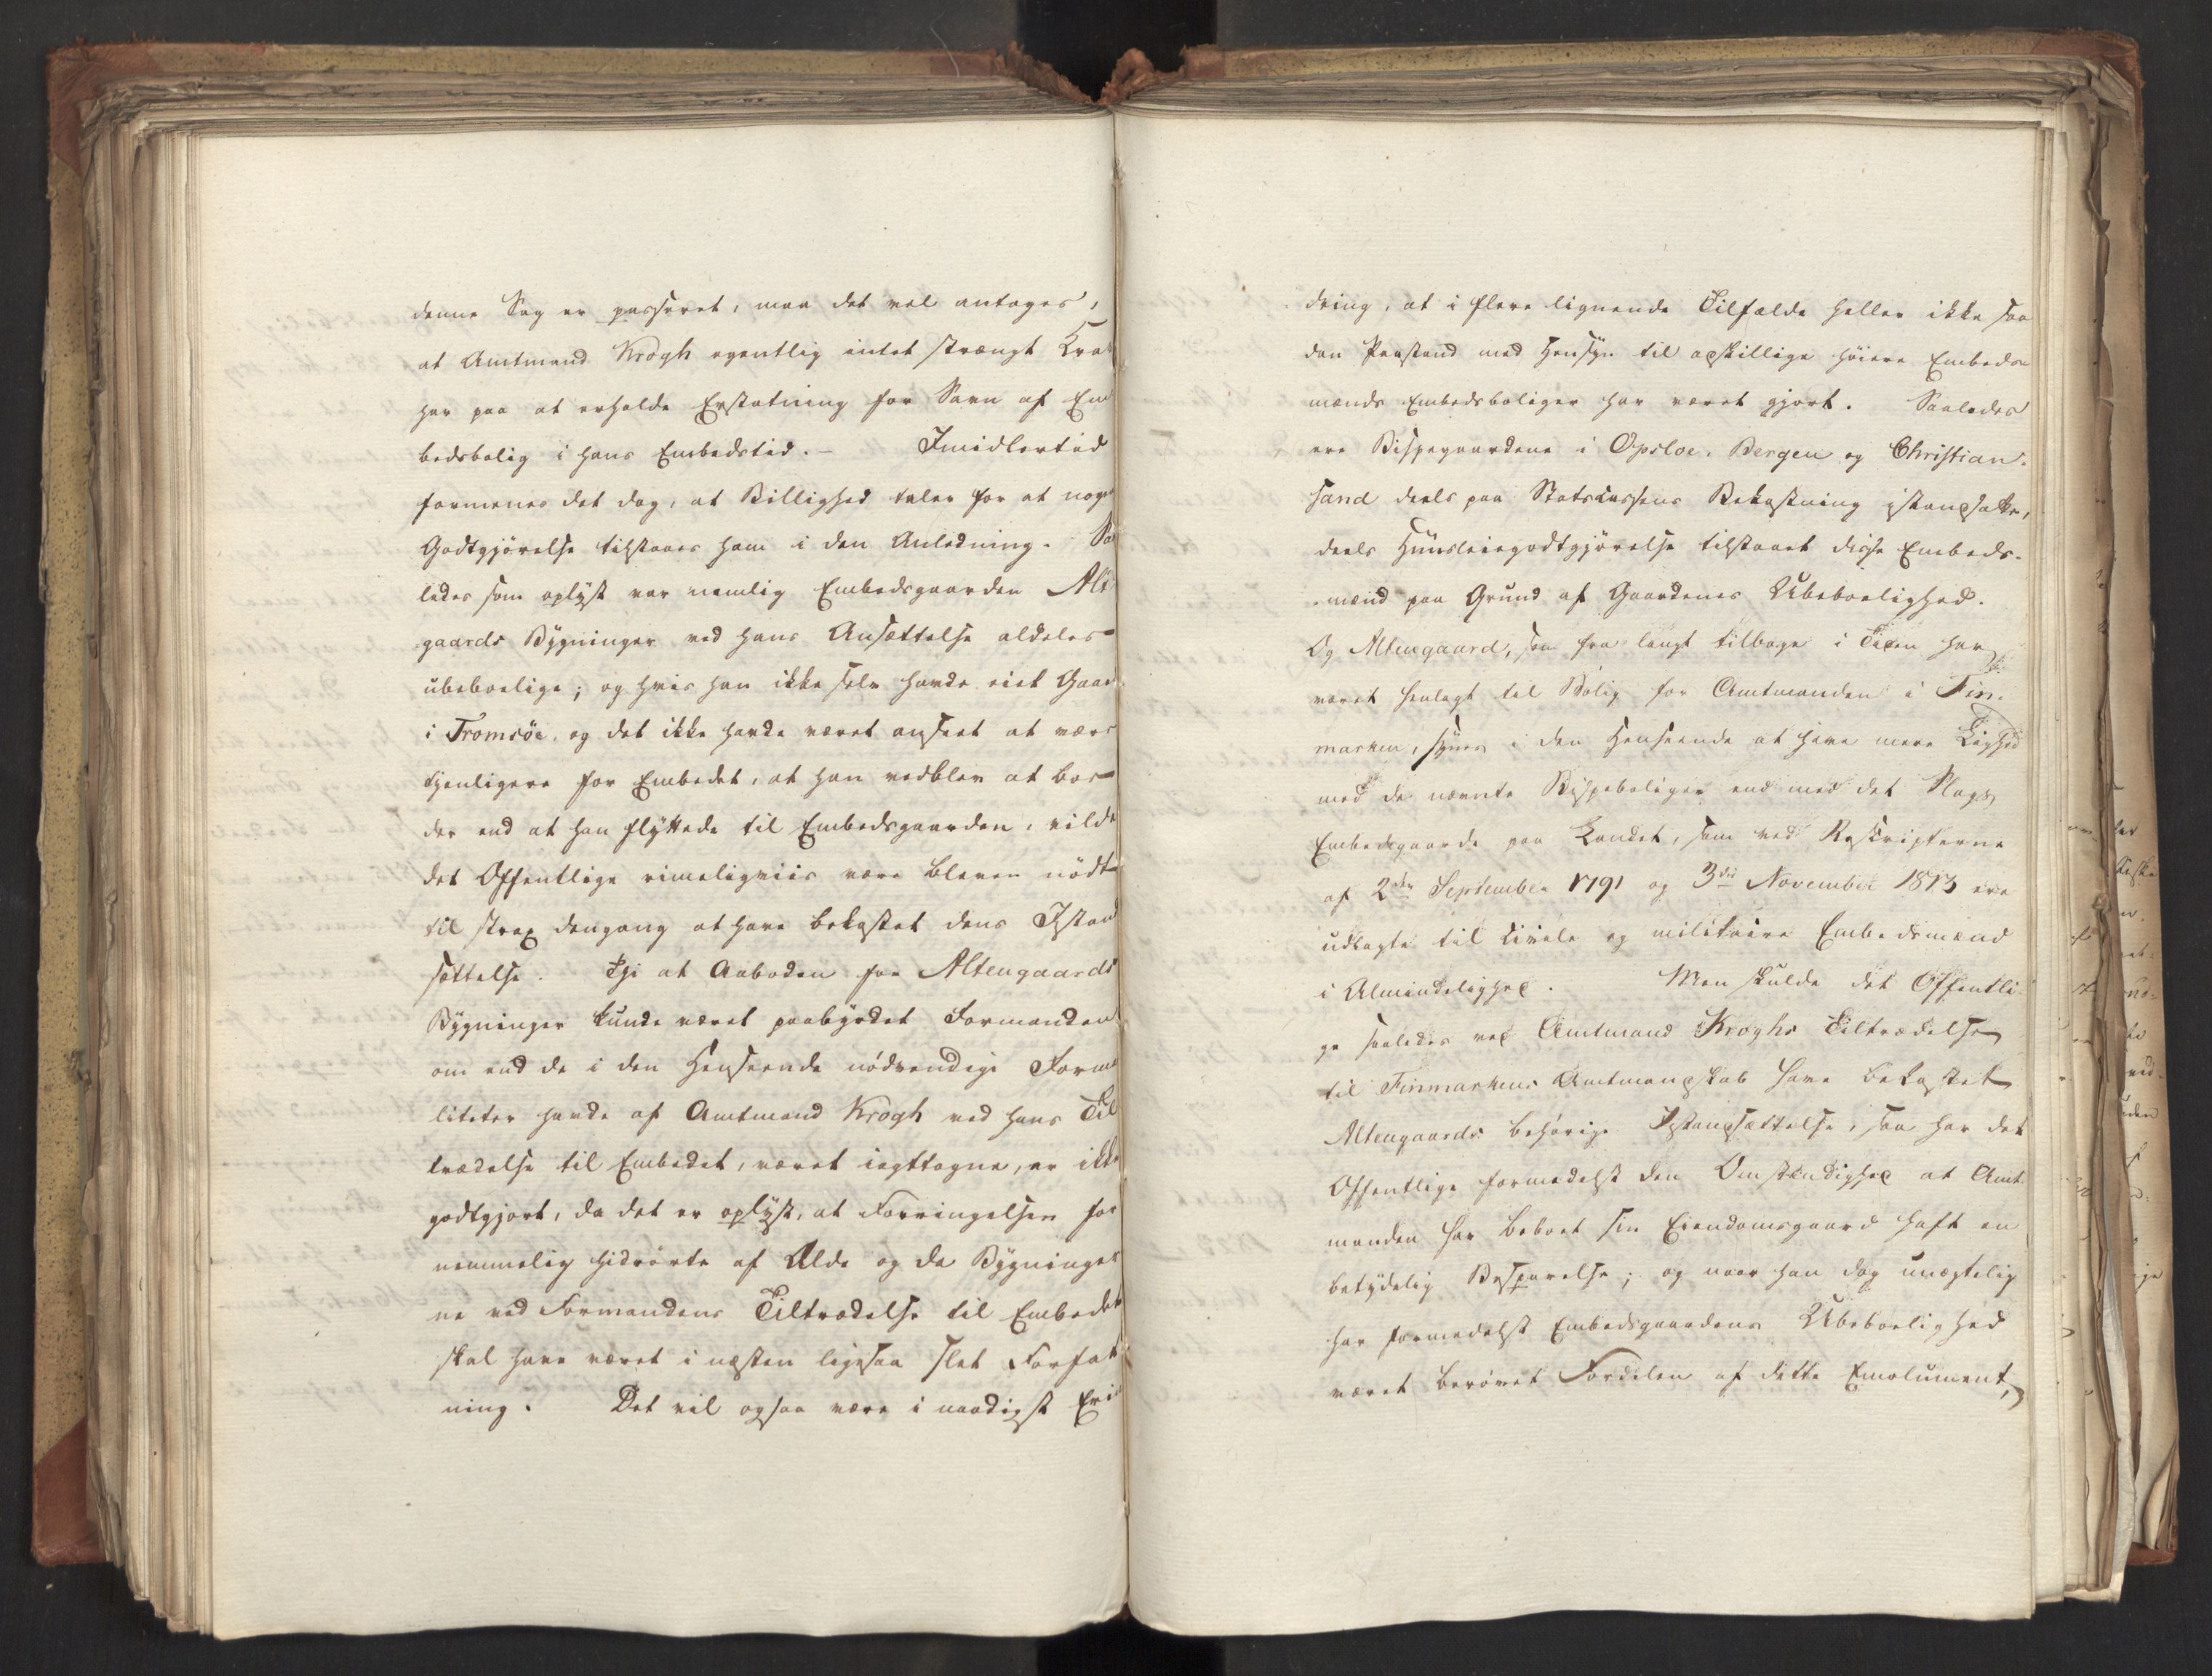 denne Sag er passeret, maa det vel antages,
at Amtmand Krogh egentlig intet strængt Krav
har paa at erholde Erstatning for Savn af Em
bedsbolig i hans Embedstid. - Imidlertid
formenes det dog, at Billighed taler for at nogen
Godtgjörelse tilstaaes ham i den Anledning. Saa
ledes som oplyst var nemlig Embedsgaarden Alten
gaards Bÿgninger ved hans Ansættelse aldeles
ubeboelige; og hvis han ikke selv havde eiet Gaard
i Tromsöe, og det ikke havde været anseet at være
tjenligere for Embedet, at han vedblev at boe
der end at han flÿttede til Embedsgaarden, vilde
det Offentlige rimeligviis være bleven nödt
til strax dengang at have bekostet dens Istand
sættelse. Thi at Aaboden for Altengaards
Bÿgninger kunde været paabÿrdet Formanden
om end de i den Henseende nödvendige Forma
liteter havde af Amtmand Krogh ved hans Til
trædelse til Embedet, været iagttagne, er ikke
godtgjort, da det er oplÿst, at Forringelsen for
nemmelig hidrörte af Ælde og da Bÿgninger
ne ved Formandens Tiltrædelse til Embedet
skal have været i næsten ligesaa slet Forfat
ning. Det vil ogsaa være i naadigst Erin
dring, at i flere lignende Tilfælde heller ikke saa
dan Paastand med Hensÿn til adskillige höiere Embeds
mænds Embedsboliger har været gjort. Saaledes
ere Bispegaardene i Opsloe, Bergen og Christian-
sand deels paa Statscassens Bekostning istandsatte,
deels Huusleiegodtgjörelse tilstaaet disse Embeds-
mænd paa Grund af Gaardenes Ubeboelighed.
Og Altengaard, som fra langt tilbage i Tiden har
været henlagt til Bolig for Amtmanden i Fin-
marken, sÿnes i den Henseende at have mere Lighed
med de nævnte Bispeboliger end med det Slags
Embedsgaarde paa Landet, som ved Rescripterne
af 2den September 1791 og 3die November 1813 ere
udlagte til civile og militaire Embedsmænd
i Almindelighed. Men skulde det Offentli
ge saaledes ved Amtmand Kroghs Tiltrædelse
til Finmarkens Amtmandskab have bekostet
Altengaards behörige Istandsættelse, saa har det
Offentlige formedelst den Omstændighed at Amt
manden har beboet sin Eiendomsgaard haft en
betÿdelig Besparelse; og naar han dog unægtelig
har formedelst Embedsgaardens Ubeboelighed
været berövet Fordelen af dette Emolument,